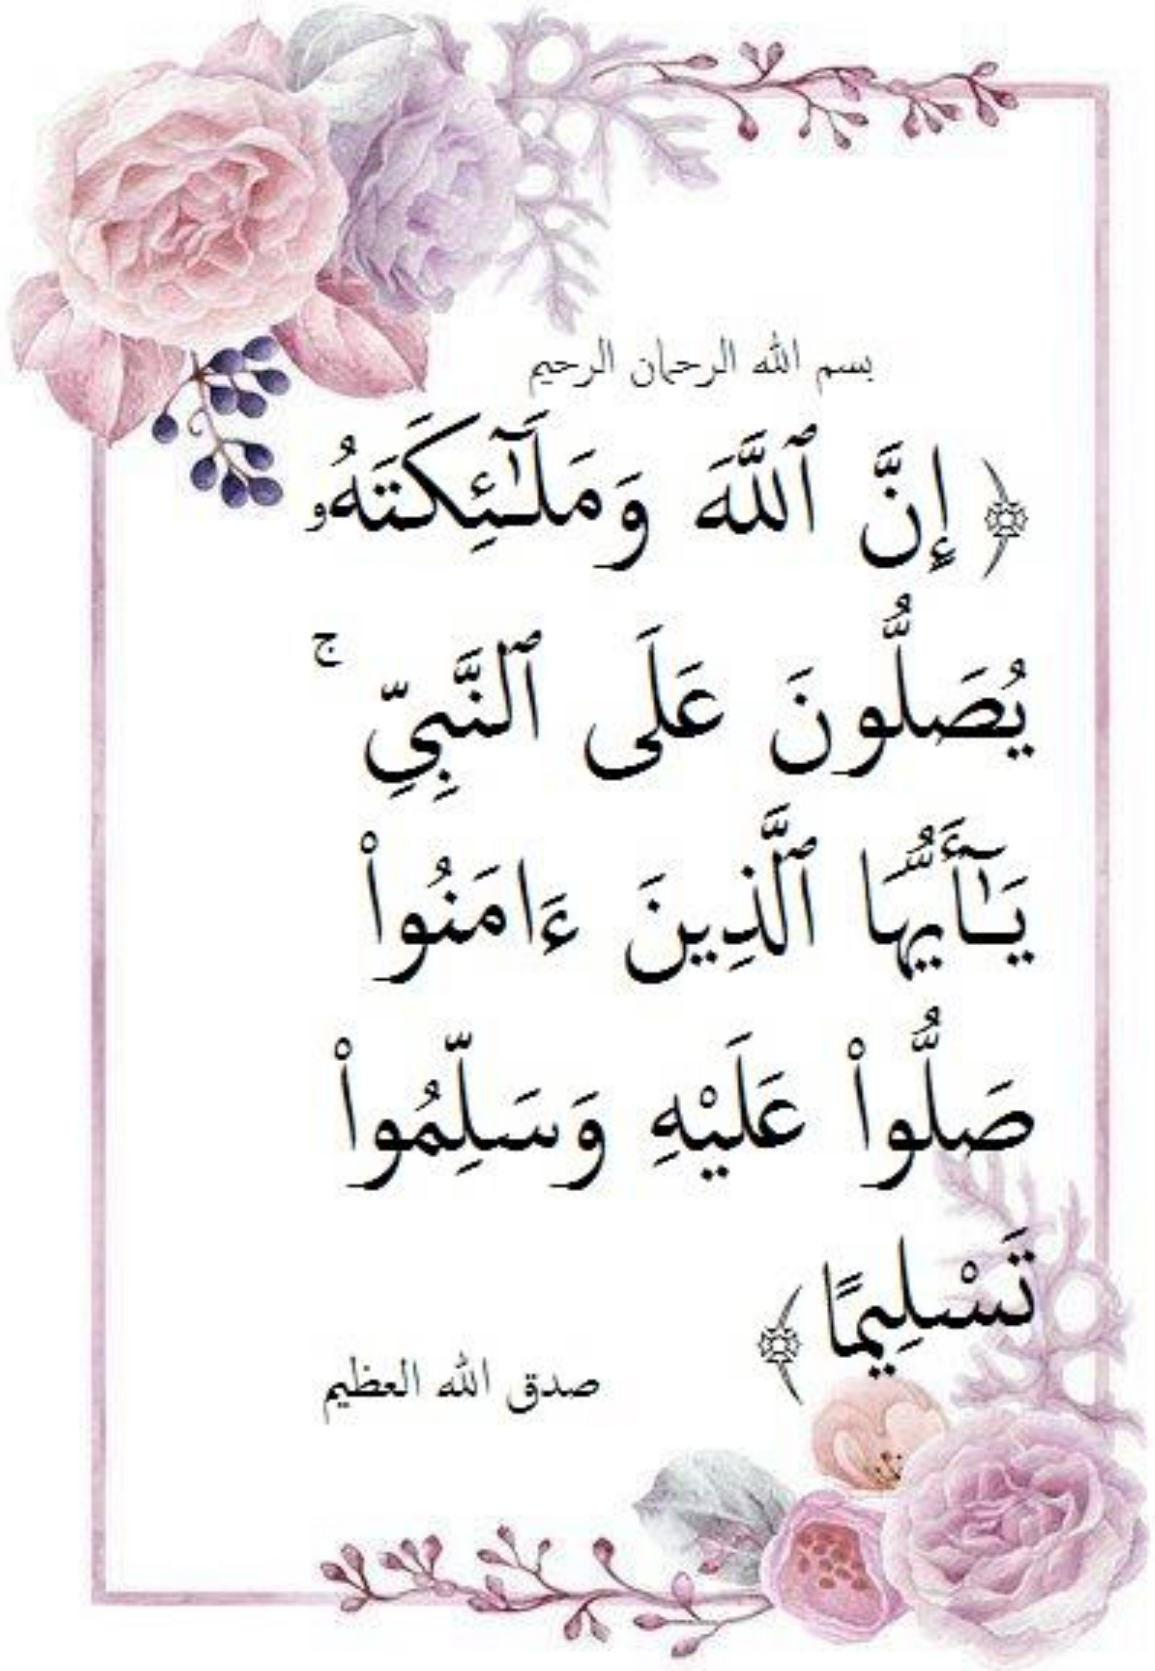 بسم الله الرحمان الرحيم
﴿ إِنَّ ٱللَّهَ وَمَلَـٰٓئِكَتَهُۥ
يُصَلُّونَ عَلَى ٱلنَّبِىِّ ۚ
يَـٰٓأَيُّهَا ٱلَّذِينَ ءَامَنُوا۟
صَلُّوا۟ عَلَيْهِ وَسَلِّمُوا۟
تَسْلِيمًا ﴾
صدق الله العظيم